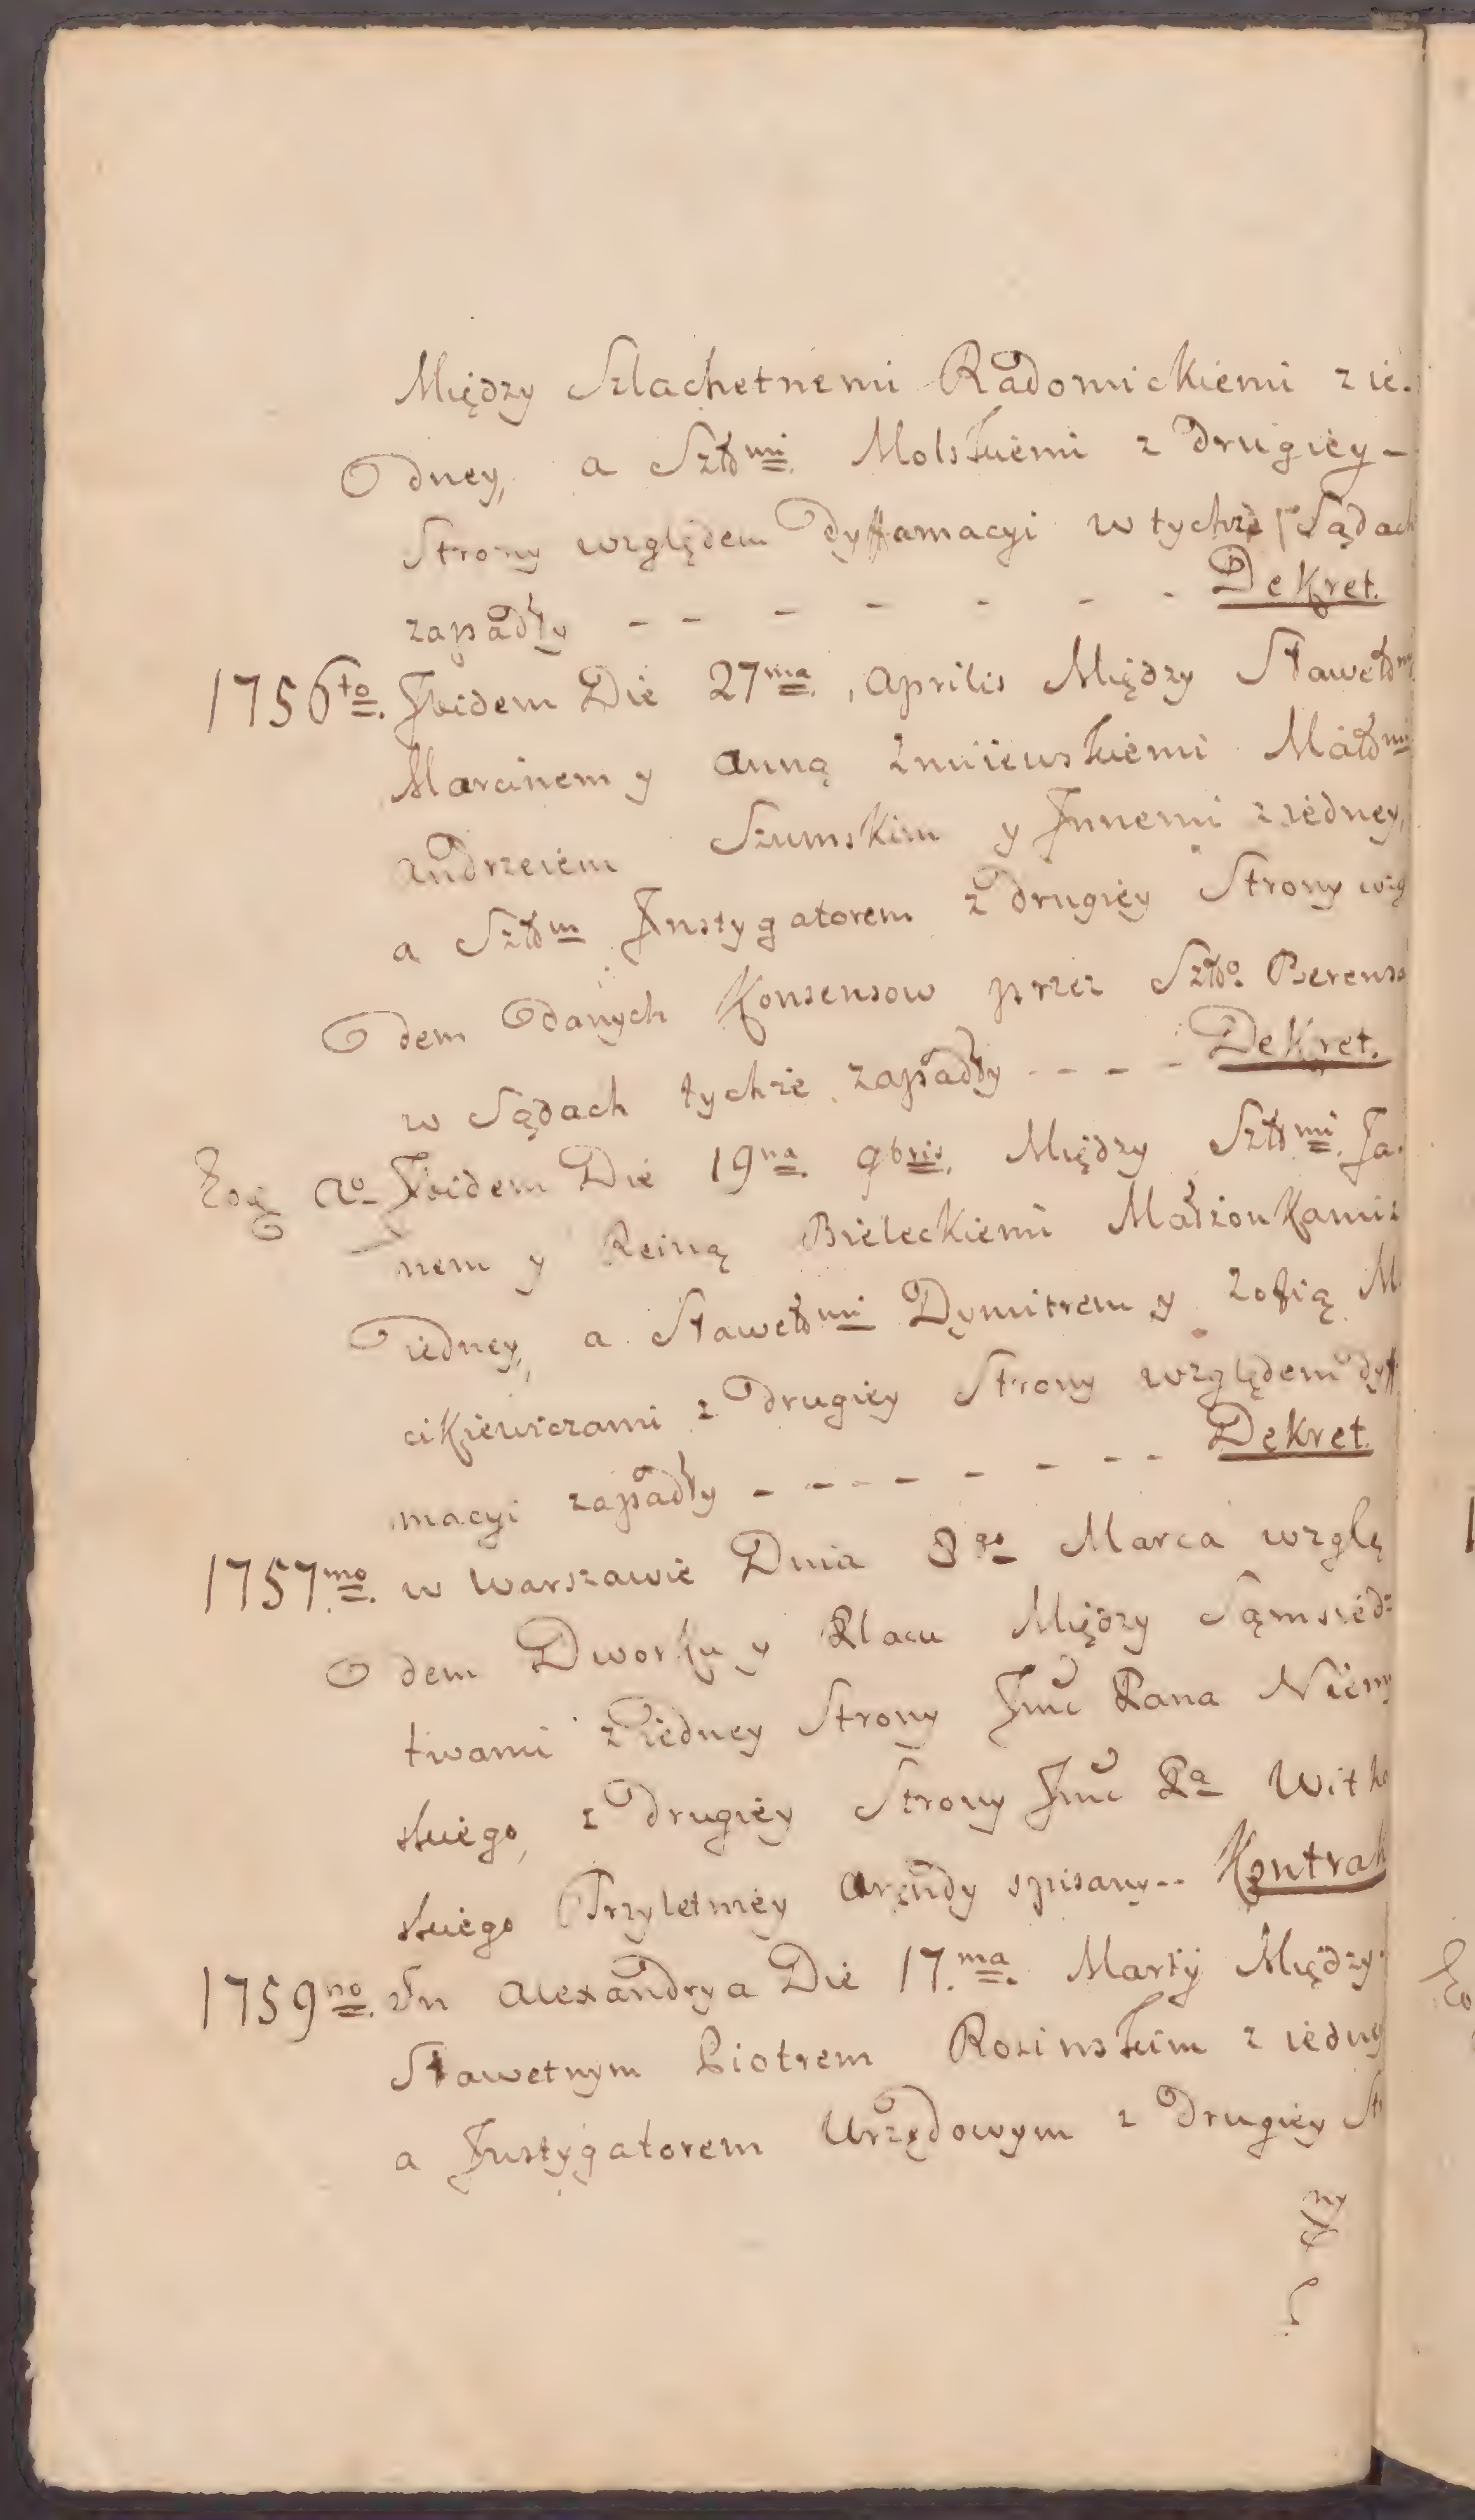 Między Szlachetnemi Radomickiemi z ie-
dney, a Szłd mi Molskiemi z drugiey -
Strony względem dyffamacyi w tychże Sądach
zapadły - - - - - - - Dekret.
1756to. Ibidem Die 27ma. Aprilis Między Sławetd mi
Marcinem y Anną Zmiiewskiemi Małd mi
Andrzeiem Szumskim y Innemi z iedney,
a Szłd m Instygatorem z drugiey Strony wzg
dem danych Konsensow przez Szłdo
w Sądach tychże zapadły - - - - Dekret.
Eoq Ao Ibidem Die 19na 9bris. Między Szłd mi. Ja-
nem y Reiną Bieleckiemi Małżonkami z
iedney, a Sławetd mi Dymitrem y Zofią M
cikiewiczami z drugiey Strony względem dyff
macyi zapadły - - - - - - - - Dekret.
1757mo. w Warszawie Dnia 3go Marca wzglę
dem Dworku y Placu Między Sąmsiedz
twami z iedney Strony Jmć Pana Niemy
skiego, z drugiey Strony Jmć Pa Witko
skiego Trzyletniey Arendy spisany - - Kontrak
1759no. In Alexandrya Die 17.ma. Martÿ Między
Sławetnym Piotrem Rosinskim z iedny
a Instygatorem Urzędowym z drugiey St
ny